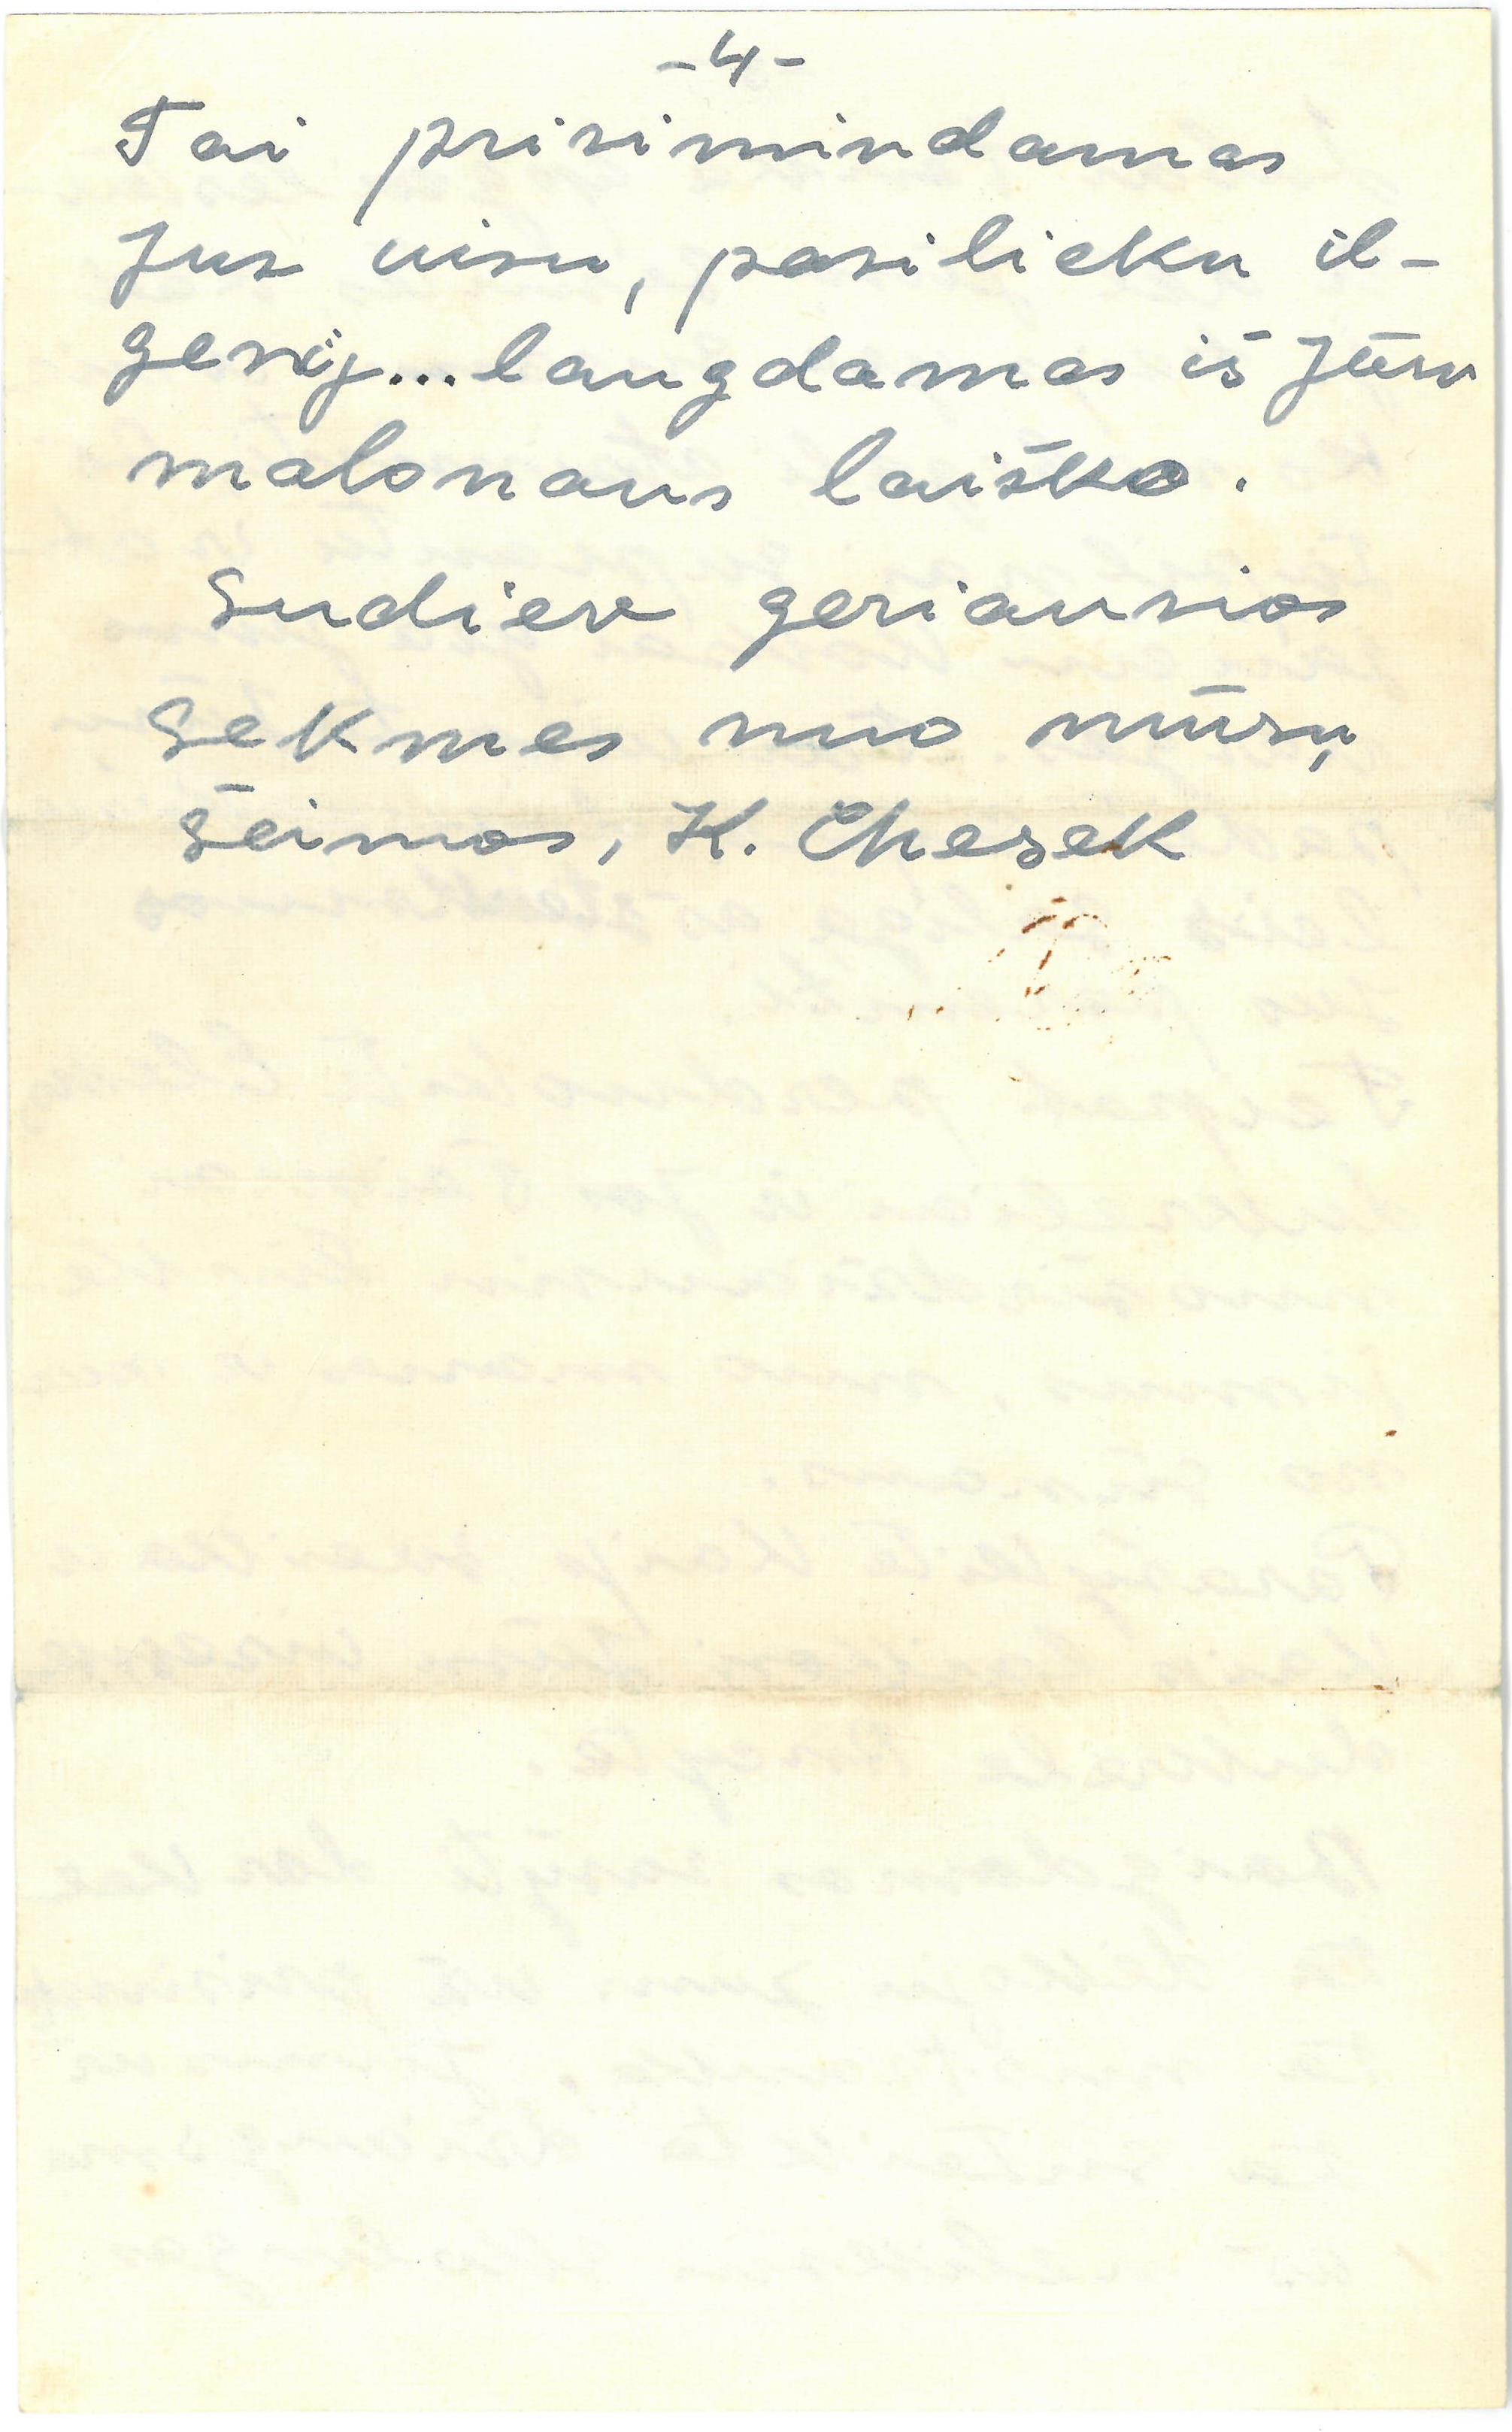 -4-
Tai prisimindamas
Jus visu, pasilieku il-
gesij... laugdamas iš Jūsu
malonaus laiško.
Sudiev geriausios
sekmes nuo mūsų
šeimos, K. Chesek